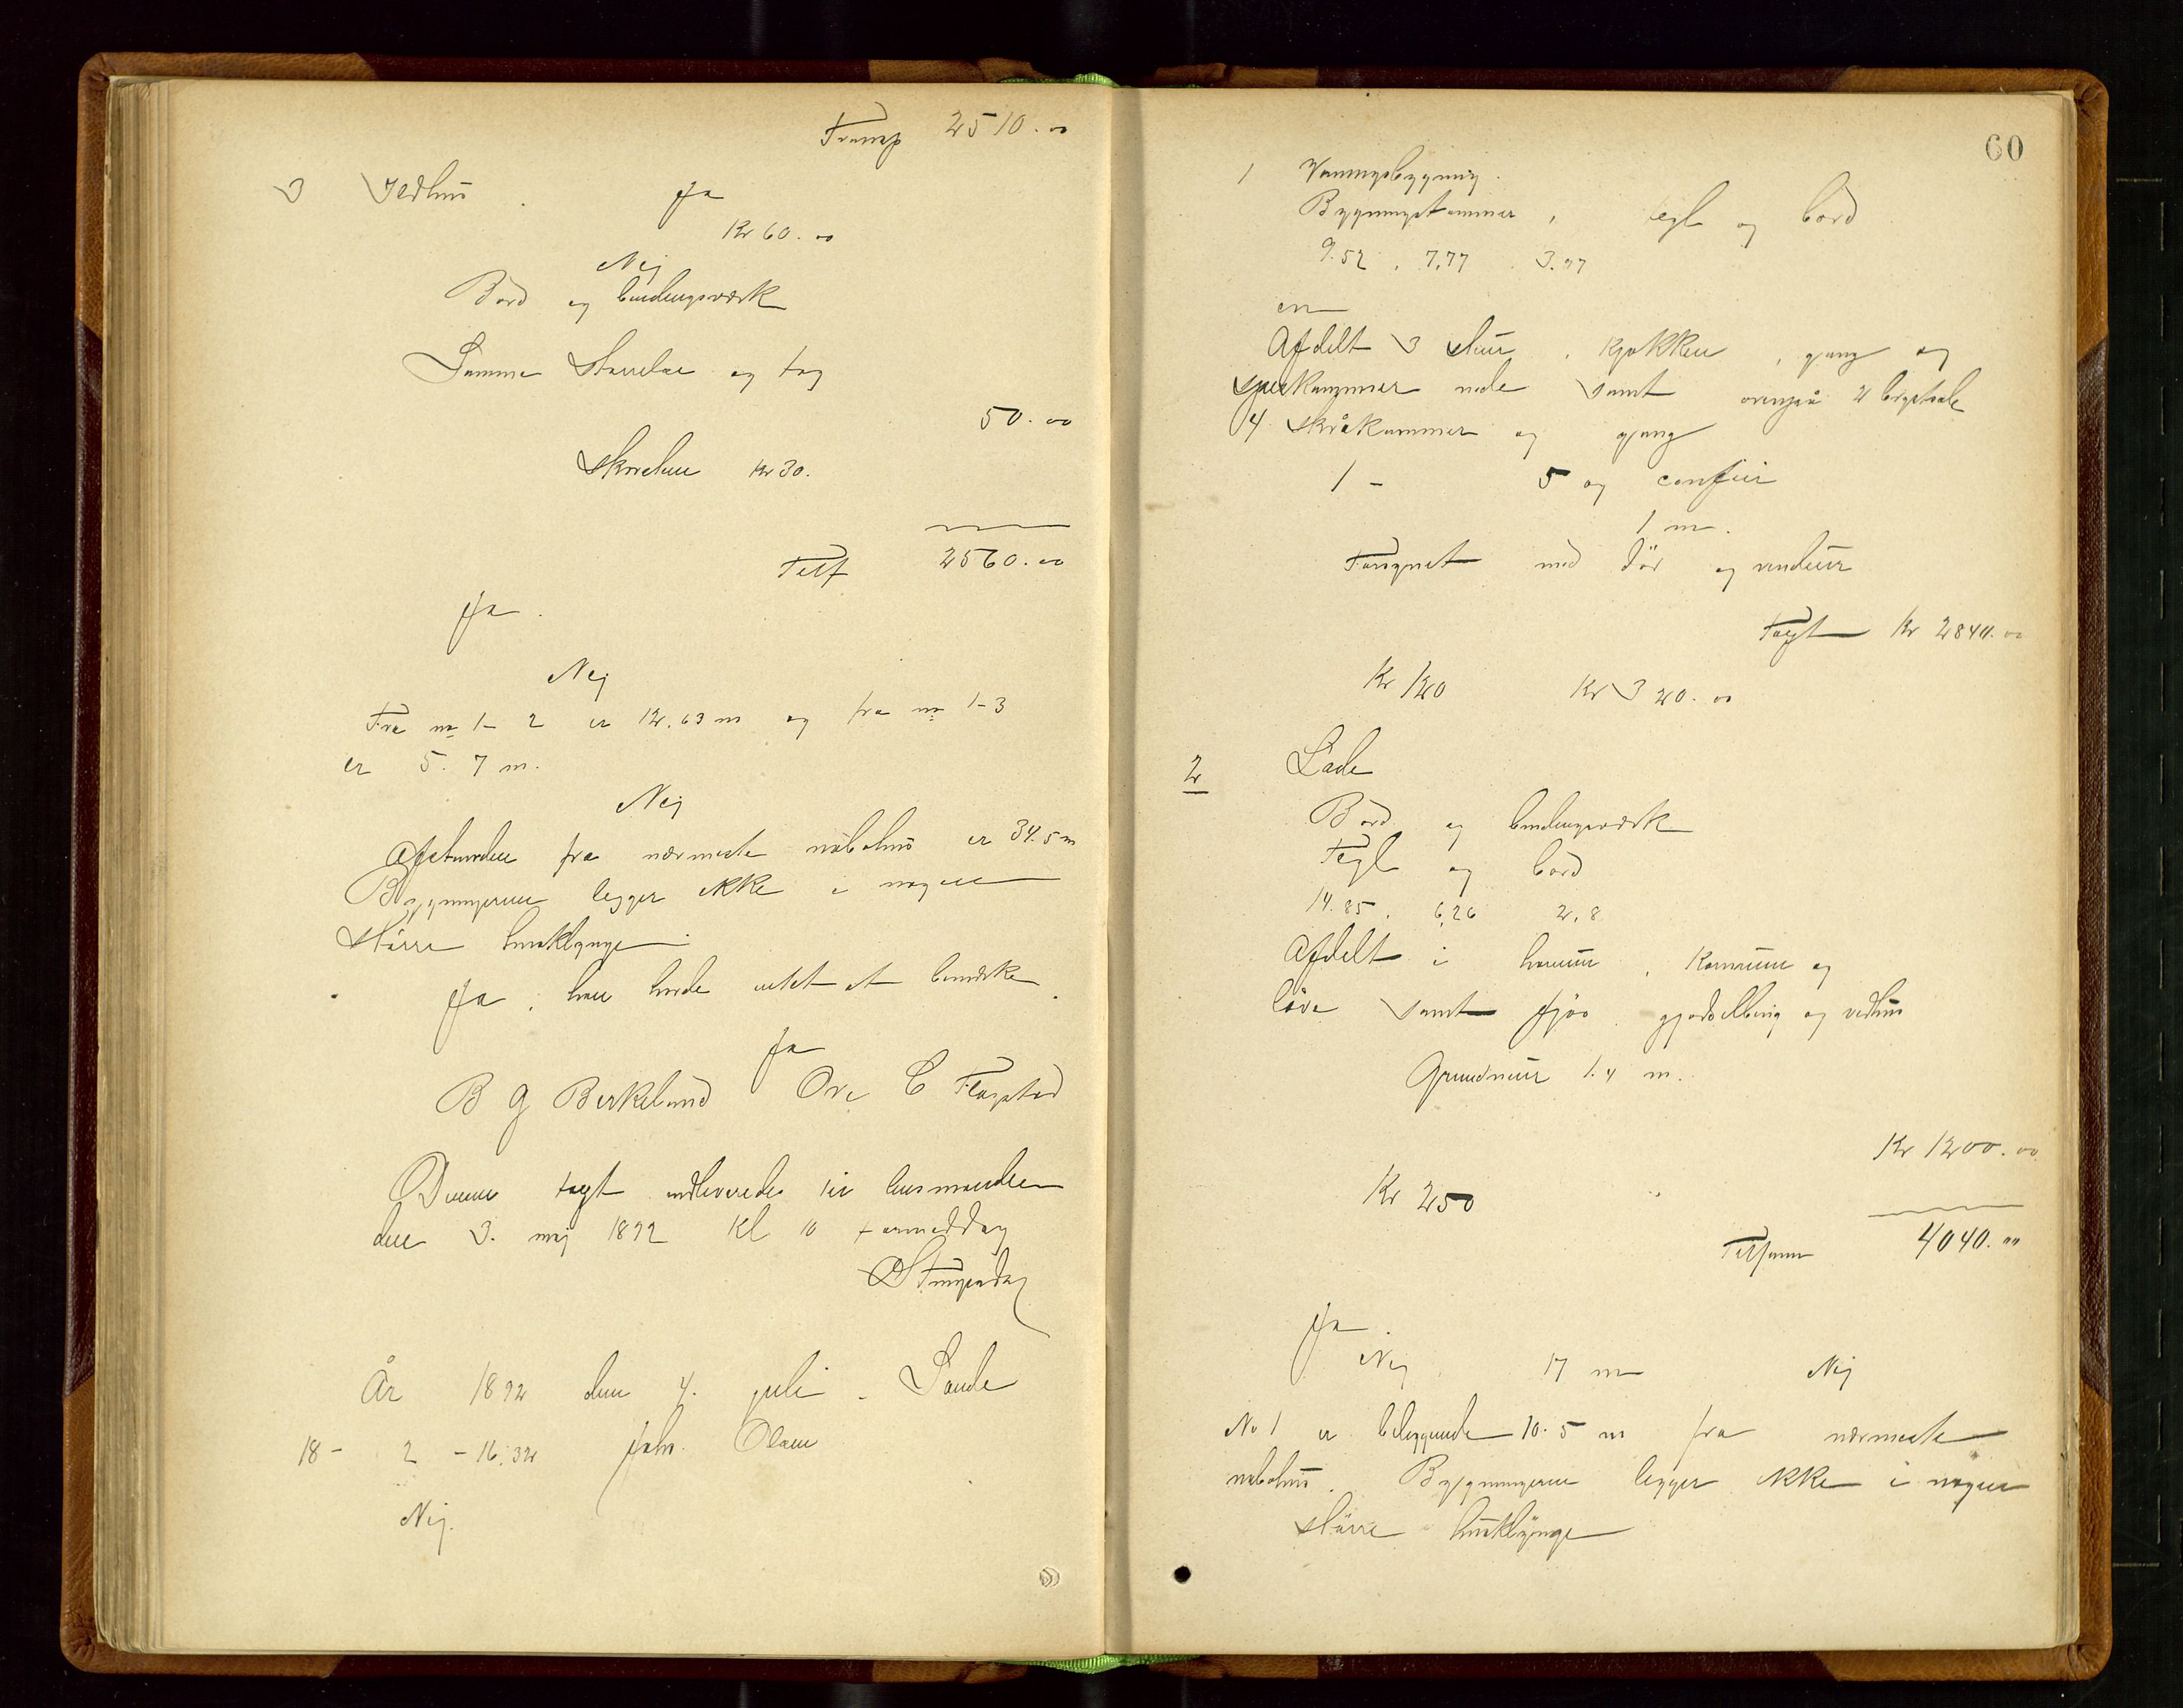 Transp 2510.00
3 Ildhus Ja
Kr 60.00
Nej
Bord og bindingsværk
Samme Størrelse og tag
50.00
Skorsten Kr 30.
Tils 2560.00
Ja.
Nej
Fra no 1-2 er 12.63 m og fra no 1-3
er 5.7 m.
Nej
Afstanden fra nærmeste nabohus er 34.5 m
Bygningerne legger ikke i nogen
større husklynge.
Ja, han havde intet at bemærke.
Ja
B G Birkeland Ove C Flogstad
Denne taxt udleveredes til lensmanden
den 3. maj 1892 kl 10 formiddag
År 1892 den 4. juli. Sande
18 - 2 - 16.32 Johs. Olsen
Nej.
60
1 Vaaningsbygning.
Bygningstømmer, tegl og bord
9.52. 7.77. 3.77
en
Afdelt 3 stuer, kjøkken, gang og
spiskammer nede samt ovenpaa 2
4 skråkammer og gang
1 - 5 og comfur
1 m.
Forsynet med dör og vinduer
Taxt Kr 2840.00
Kr 120 Kr 320.00
2 Lade
Bord og bindingsværk
Tegl og bord
14.85. 6,26 2,8
Afdelt i, kornrum og
löve samt fjös, gjødselbing og vedhus
Grundmur 1.4 m.
Kr 1200.00
Kr 250
Tilsamm 4040.00
Ja.
Nej 17 m Nej
No 1 er beliggende 10.5 m fra nærmeste
nabohus. Bygningerne legger ikke i nogen
större husklynge